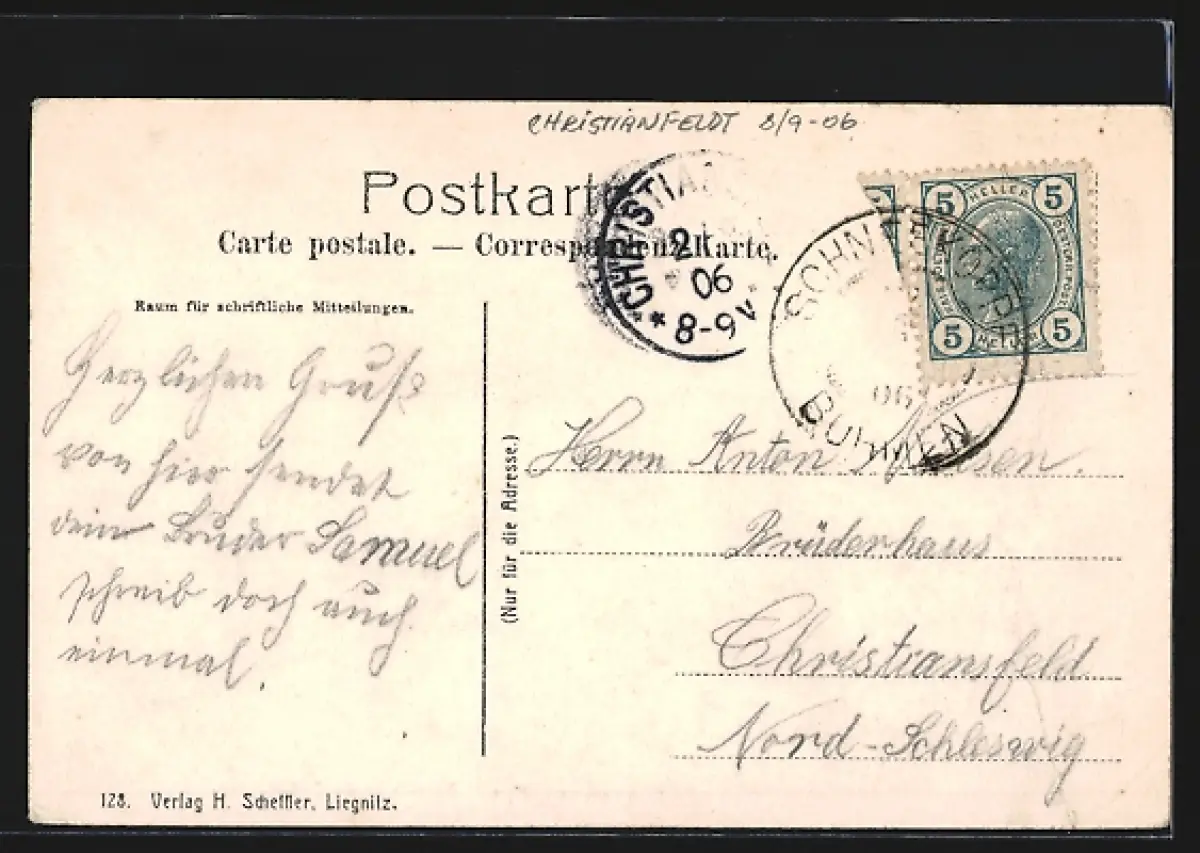 CHRISTIANFEldT 8/9-06
Postkarte
Carte postale. — Correspondenz-Karte.
Raum für schriftliche Mitteilungen.
CHRISTIA
2
06
* 8-9V *
SCHNEEKOPPE
06
BÖHMEN
5 HELLER 5
5 HELLER 5
Herzlichen Gruß
von hier sendet
dein Bruder Samuel
schreib doch auch
einmal.
(Nur für die Adresse.)
Herrn Anton
Brüderhaus
Christiansfeld
Nord-Schleswig
128. Verlag H. Scheffler, Liegnitz.